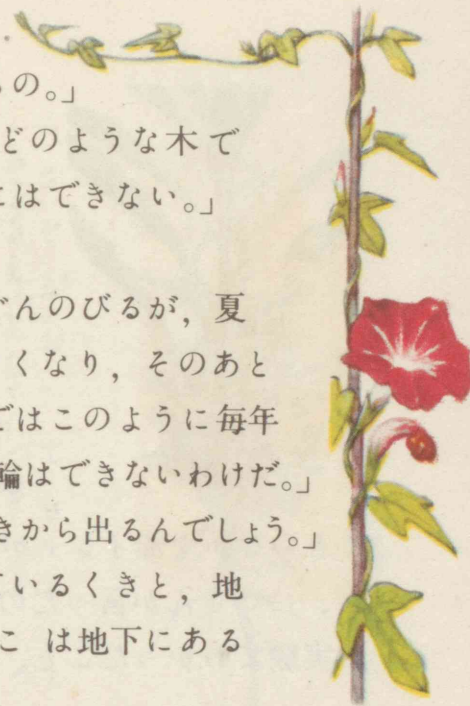 の。」
どのような木で
にはできない。」
ぶんのびるが，夏
くなり，そのあと
ではこのように毎年
輪はできないわけだ。」
きから出るんでしょう。」
ているくきと，地
こ は地下にある